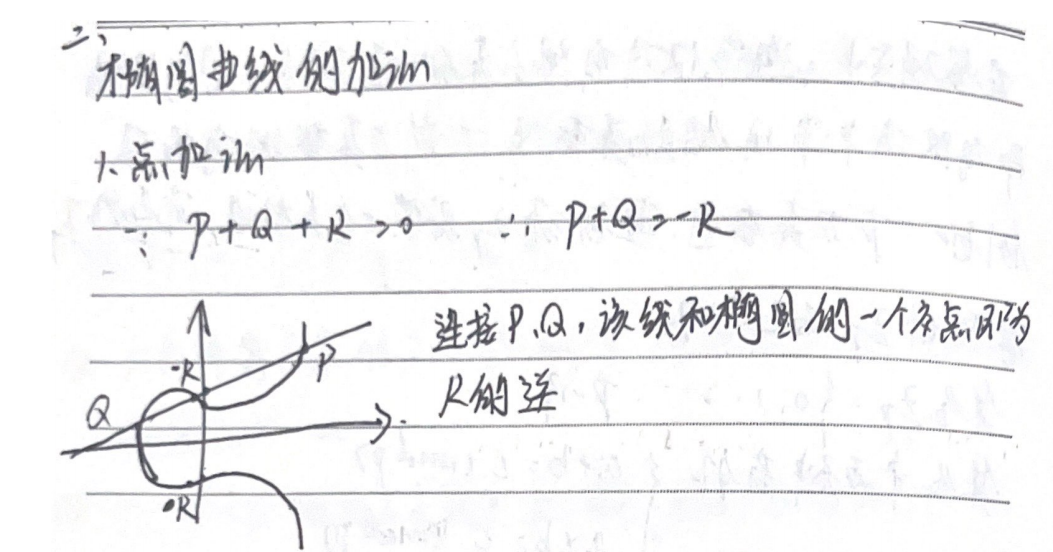 二、
椭圆曲线的加法
1、点加法
∵ P+Q+R=0 ∴ P+Q=-R
连接P、Q，该线和椭圆的一个交点即为
R的逆
-R
P
Q
R